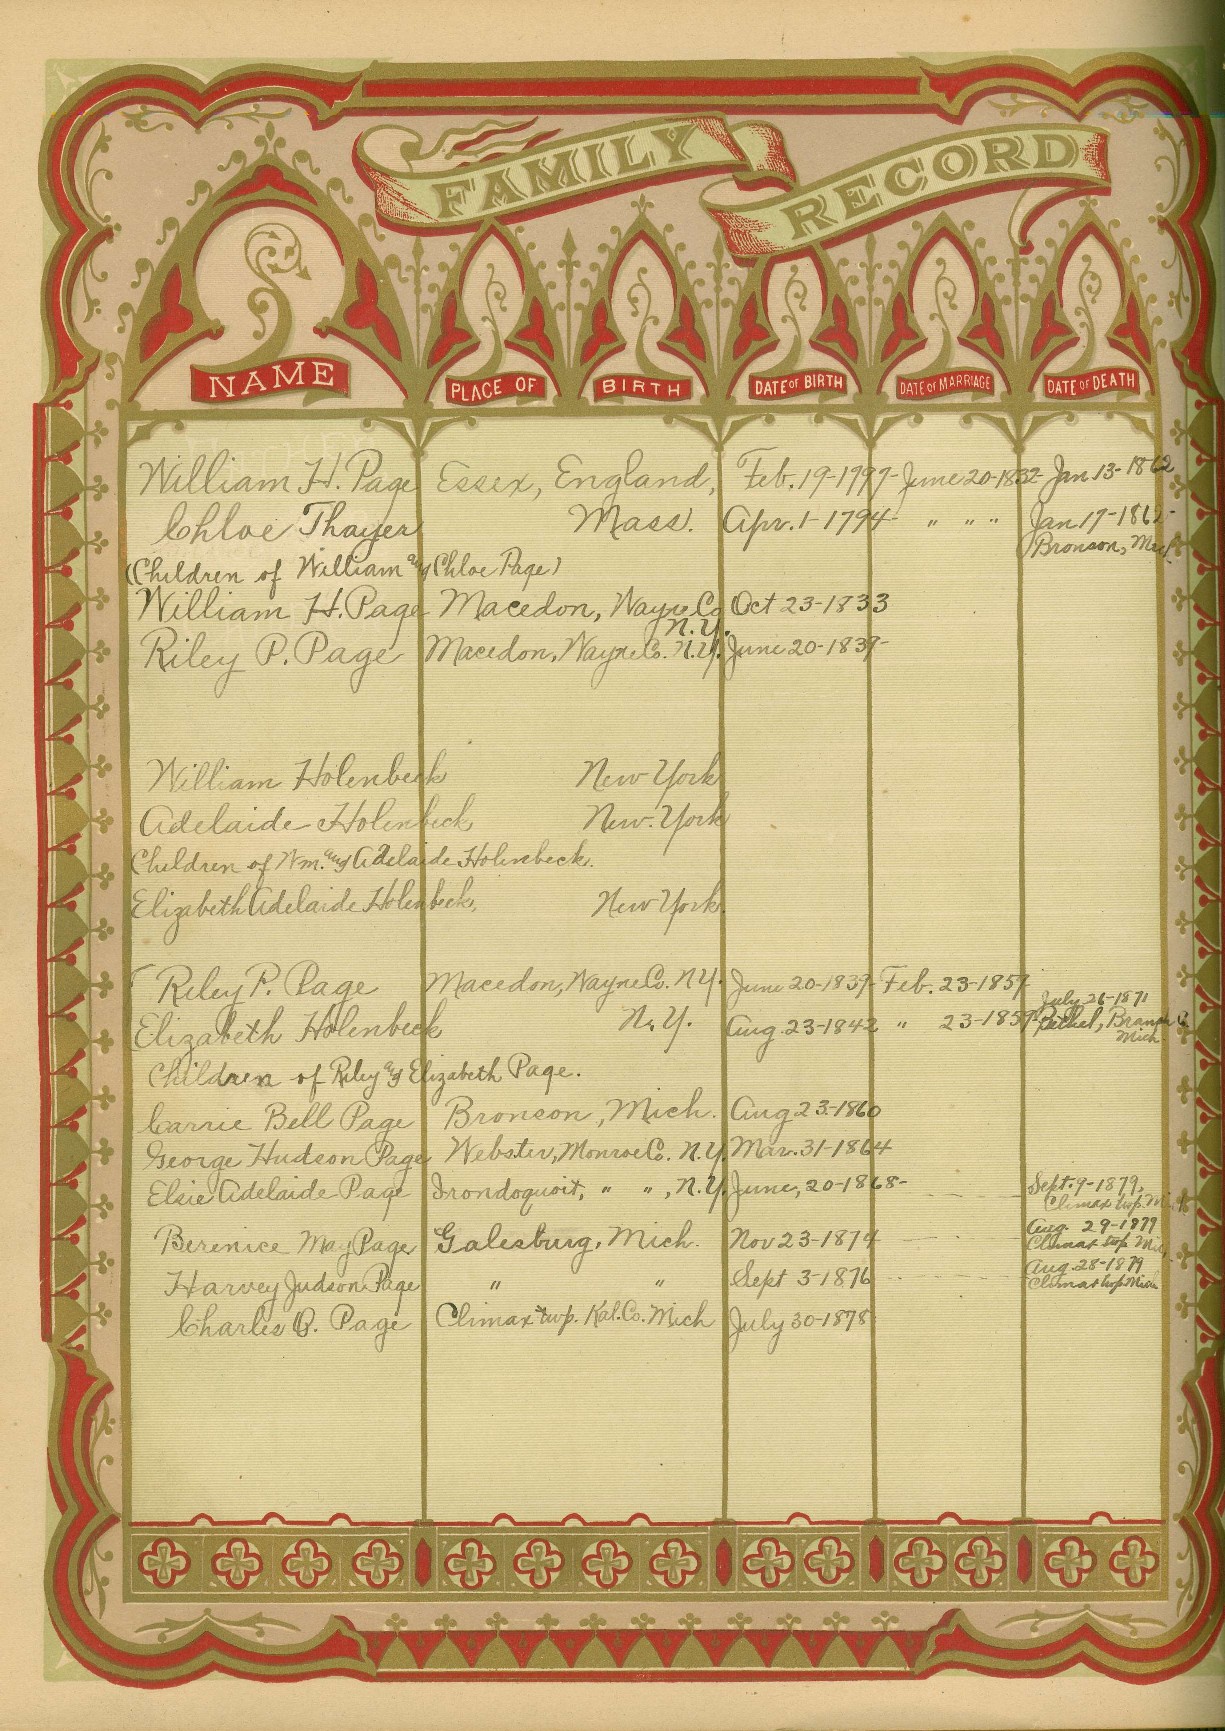 FAMILY RECORD
NAME PLACE OF BIRTH DATE OF BIRTH DATE OF MARRIAGE DATE OF DEATH
William H. Page Essex, England, Feb. 19-1797- June 20-1832- Jan 13-1862
Chloe Thayer Mass. Apr. 1-1794- " " " Jan 17-1862-
Bronson, Mich
(Children of William and Chloe Page)
William H. Page Macedon, Wayne Co N.Y. Oct 23-1833
Riley P. Page Macedon, Wayne Co. N.Y. June 20-1839-
William Holenbeck New York
Adelaide Holenbeck New York
Children of Wm. and Adelaide Holenbeck.
Elizabeth Adelaide Holenbeck, New York.
Riley P. Page Macedon, Wayne Co. N.Y. June 20-1839- Feb. 23-1859
Elizabeth Holenbeck N.Y. Aug 23-1842 " 23-1859 July 26-1871
Bethel, Branch Co.
Mich.
Children of Riley and Elizabeth Page.
Carrie Bell Page Bronson, Mich. Aug 23-1860
George Hudson Page Webster, Monroe Co. N.Y. Mar. 31-1864
Elsie Adelaide Page Irondoquoit, " ", N.Y. June, 20-1868- Sept. 9-1879,
Climax twp. Mich
Berenice May Page Galesburg, Mich. Nov 23-1874 Aug. 29-1879
Climax twp Mich,
Harvey Judson Page " " Sept 3-1876 Aug. 28-1879
Climax twp Mich
Charles O. Page Climax twp. Kal. Co. Mich July 30-1878